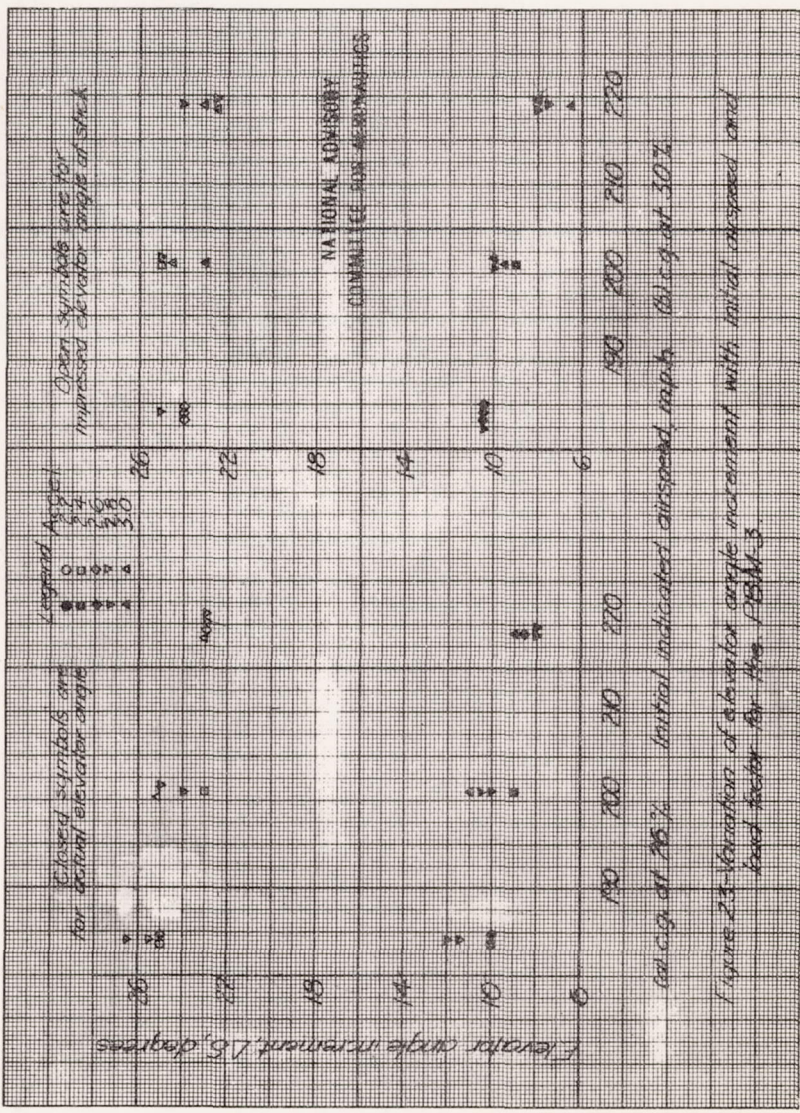 Closed symbols are
for actual elevator angle
Legend Accel
2.2
2.4
2.6
2.8
3.0
Open symbols are for
impressed elevator angle at stick
NATIONAL ADVISORY
COMMITTEE FOR AERONAUTICS
Elevator angle increment, Δδ, degrees
26
22
18
14
10
6
26
22
18
14
10
6
190 200 210 220
190 200 210 220
(a) c.g. at
Initial indicated airspeed, m.p.h.
(b) c.g. at 30%
Figure 23-Variation of elevator angle increment with initial airspeed and
load factor for the PBM-3.